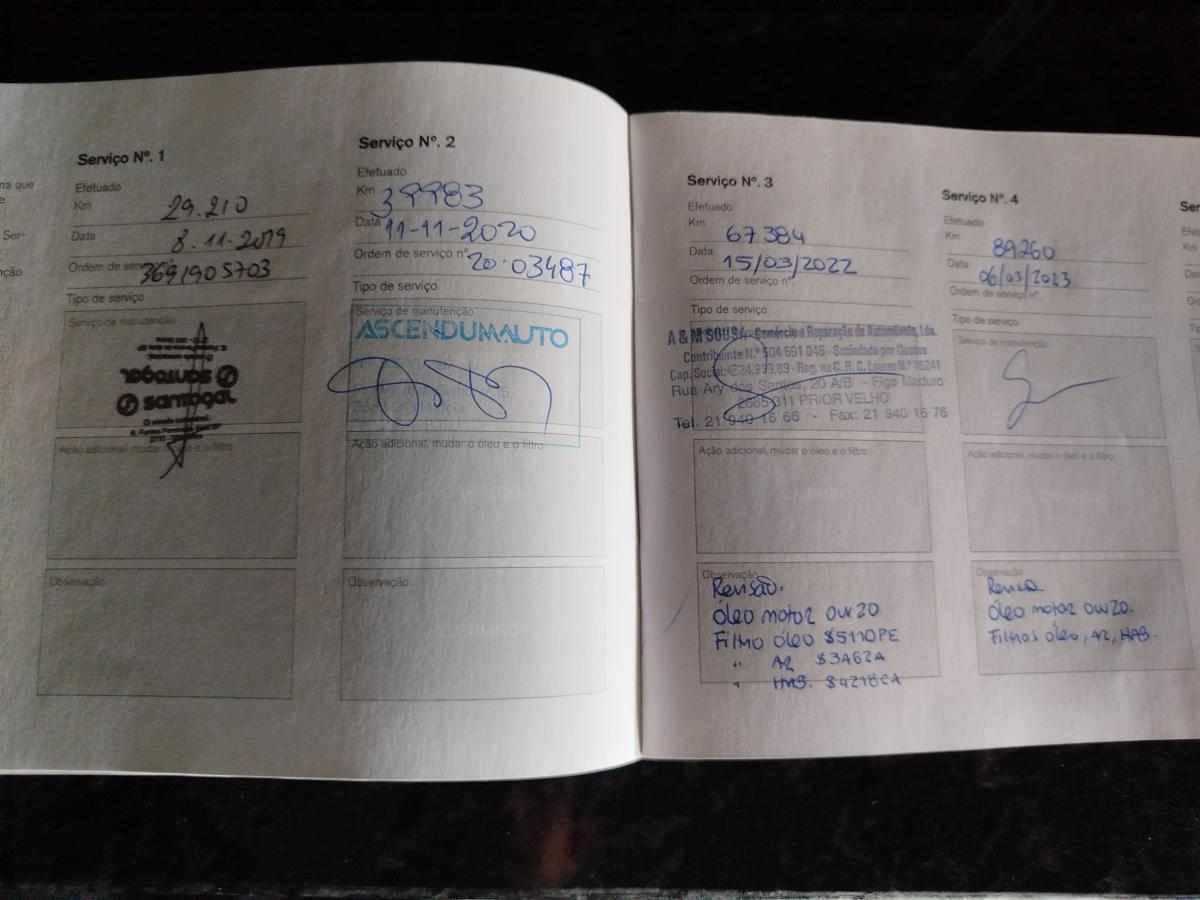 na que
e
Ser-
nção
Serviço Nº. 1
Efetuado
Km 29.210
Data 8.11.2019
Ordem de serviço nº 3691905703
Tipo de serviço
Serviço de manutenção
santogal
santogal
Ação adicional, mudar o óleo e o filtro
Observação
Serviço Nº. 2
Efetuado
Km 39983
Data 11-11-2020
Ordem de serviço nº 20.03487
Tipo de serviço
Serviço de manutenção
ASCENDUMAUTO
Ação adicional, mudar o óleo e o filtro
Observação
Serviço Nº. 3
Efetuado
Km 67384
Data 15/03/2022
Ordem de serviço nº.
Tipo de serviço
A & M SOUSA - Comércio e Reparação de Automóveis, Lda.
Contribuinte N.º 504 661 046 - Sociedade por Quotas
Cap. Social: 24.939,89 - Reg. na C. R. C. Loures N.º 16241
Rua Ary dos Santos, 20 A/B - Figo Maduro
2685-311 PRIOR VELHO
Tel. 21 940 16 66 - Fax: 21 940 16 76
Ação adicional, mudar o óleo e o filtro
Observação
Revisão.
Óleo motor 0W20
Filtro óleo S5110PE
" AR S3462A
" HAB. S4218CA
Serviço Nº. 4
Efetuado
Km 89260
Data 06/03/2023
Ordem de serviço nº.
Tipo de serviço
Serviço de manutenção
Ação adicional, mudar o óleo e o filtro
Observação
Óleo motor 0W20.
Filtros óleo, AR, HAB.
Ser